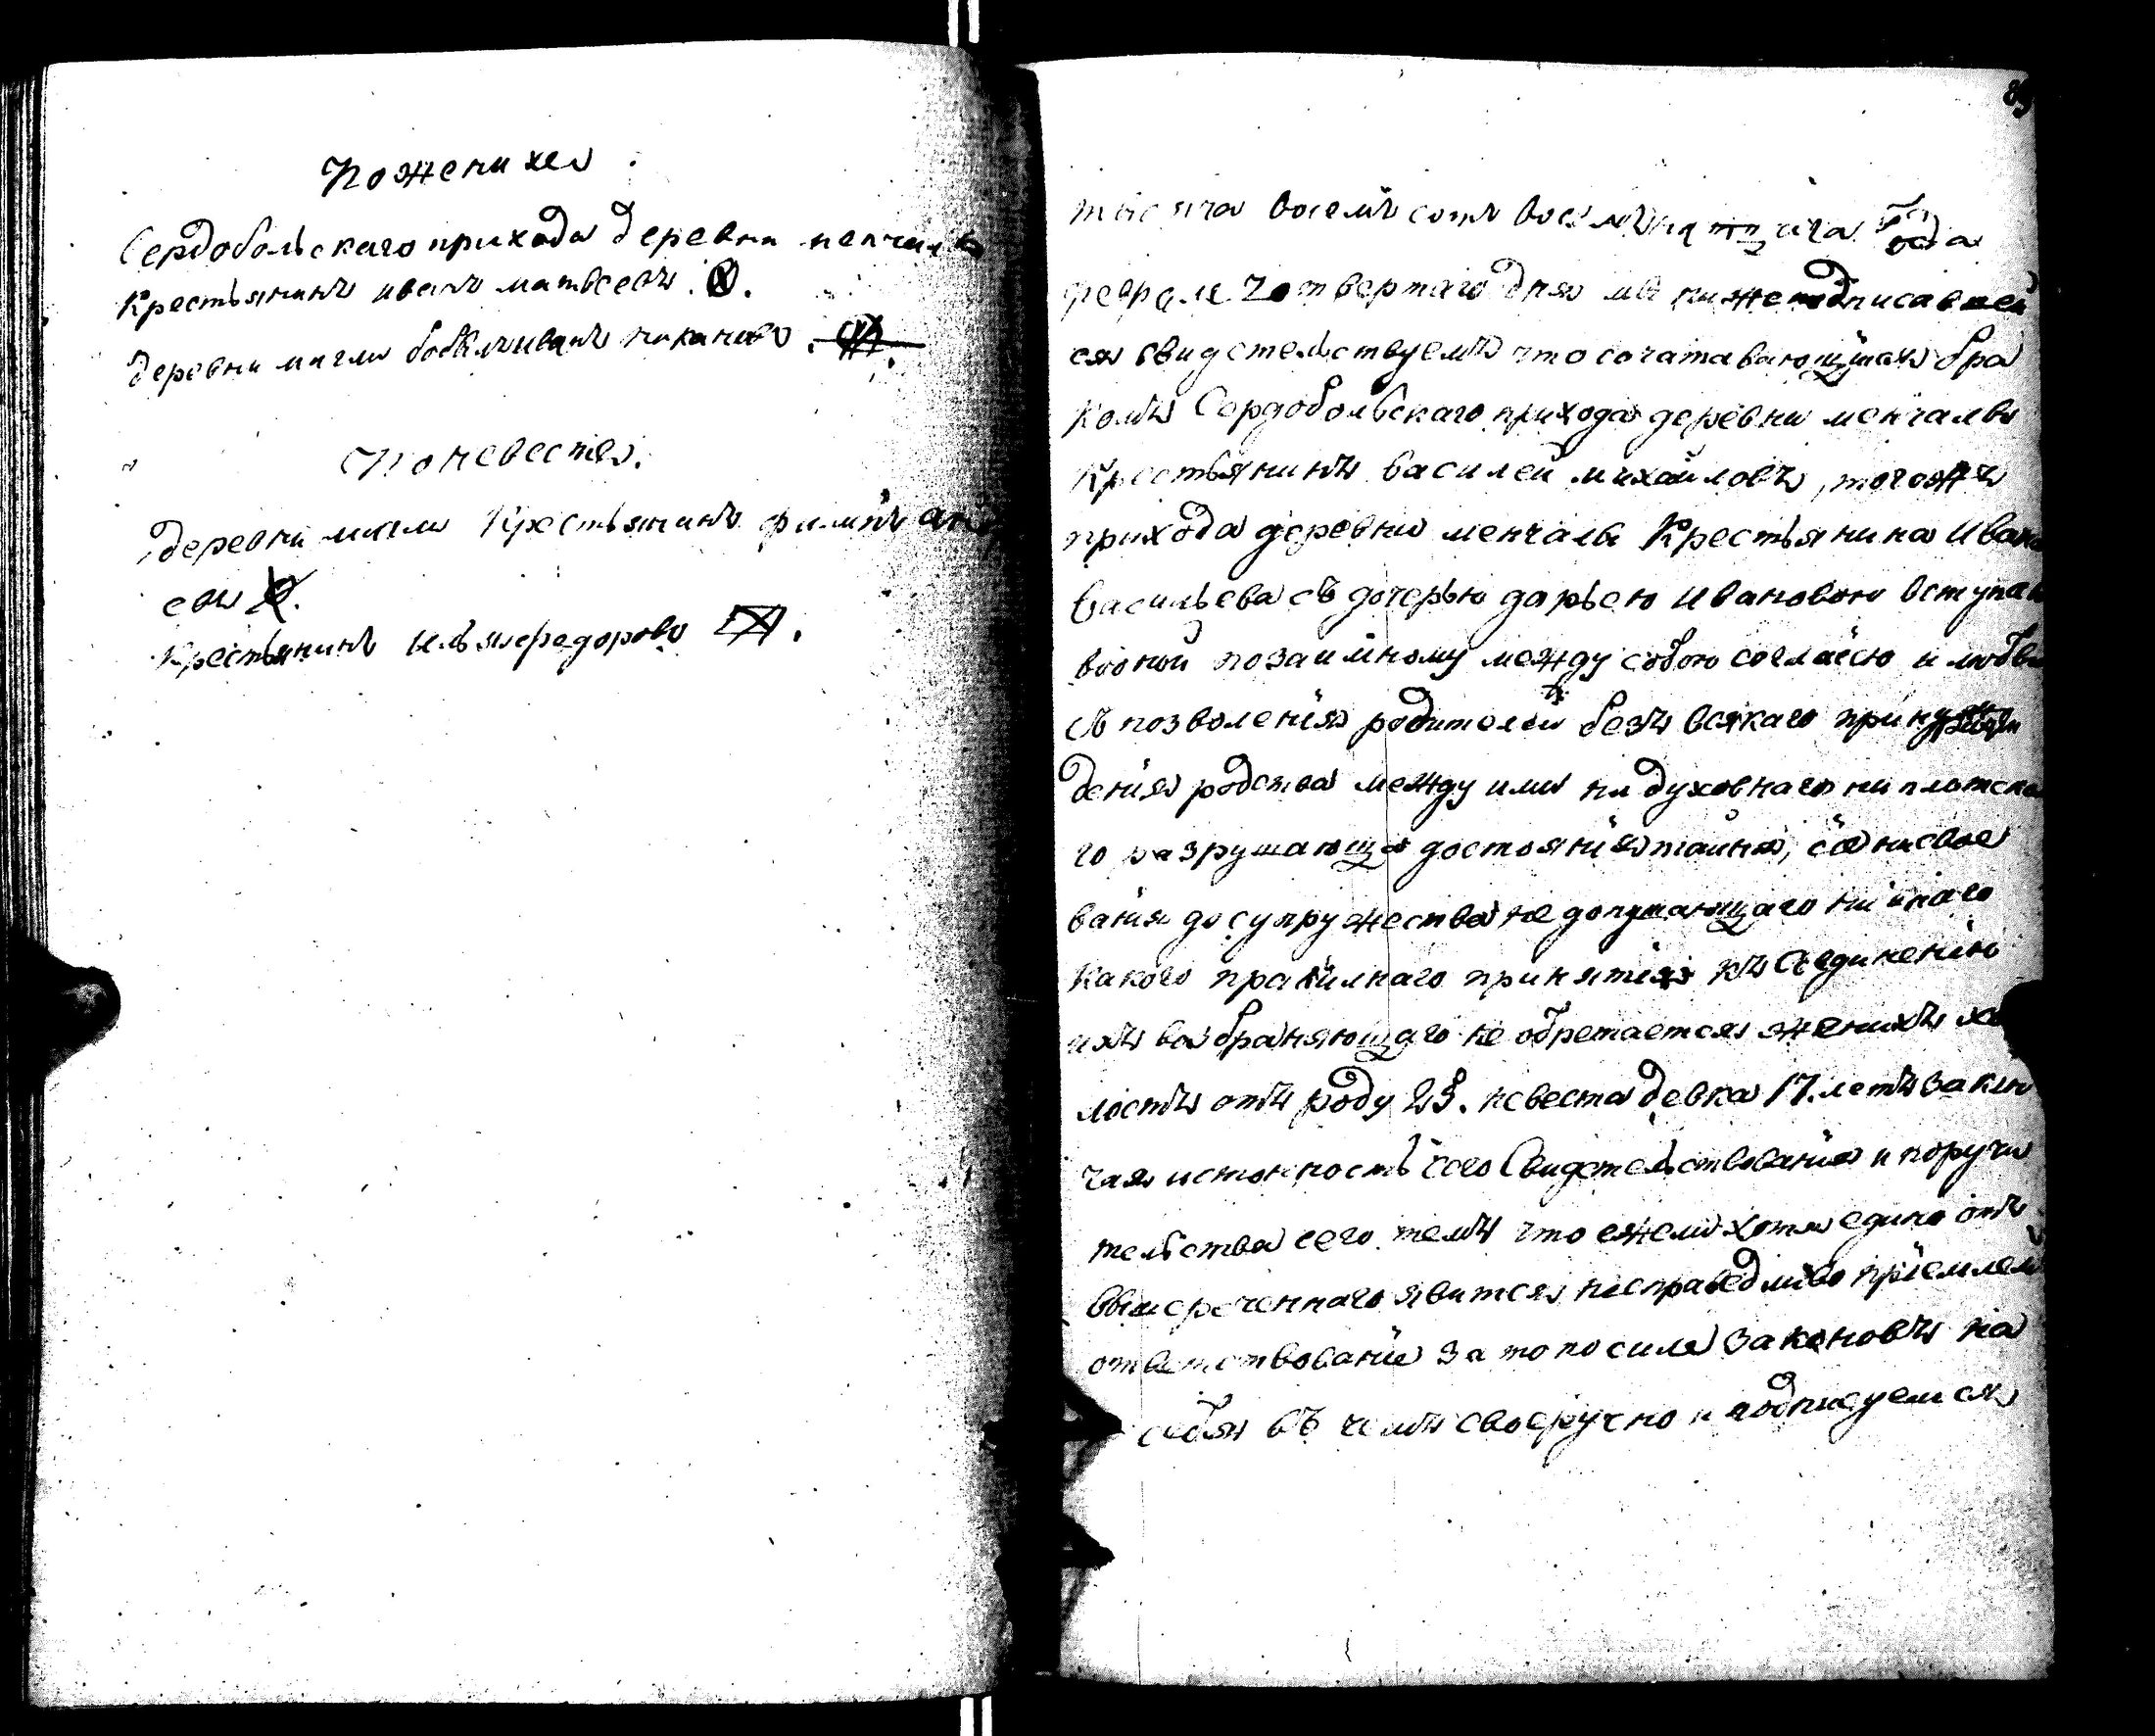 По женихе
Сердобольскаго прихода деревни
Крестьянинъ иванъ матвеевъ
деревни мигли бобыль иванъ
По невесте.
деревни мигли Крестьянинъ филипъ
евъ
Крестьянинъ илья федоровъ
89
тысяча восемъ сотъ года
февраля четвертаго дня мы нижеподписавшей
ся свидетельствуемъ что сочатавающимся бра
комъ Сердобольскаго прихода деревни менчалы
Крестьянинъ василей михайловъ, тогожъ
прихода деревни менчалы Крестьянина Ивана
васильева съ дочерью дарьею Ивановою
повзаимному между собою согласию и любви
съ позволения родителей безъ всякаго принуж
дения родства между ими ни духовнаго ни плотска
го разрушающа достояния тайны,
вания до супружества не допущающаго ни инаго
какого правилнаго принятия къ соединению
ихъ возбраняющаго не обретается женихъ хо
лостъ отъ роду 23. невеста девка 17. летъ заклю
чая истонность сего свидетельствования и поручи
тельства сего темъ что ежели хотя едино отъ
вышереченнаго явится несправедливо приемлемъ
ответствование за то по силе законовъ на
себя въ чемъ своеручно и подписуемся